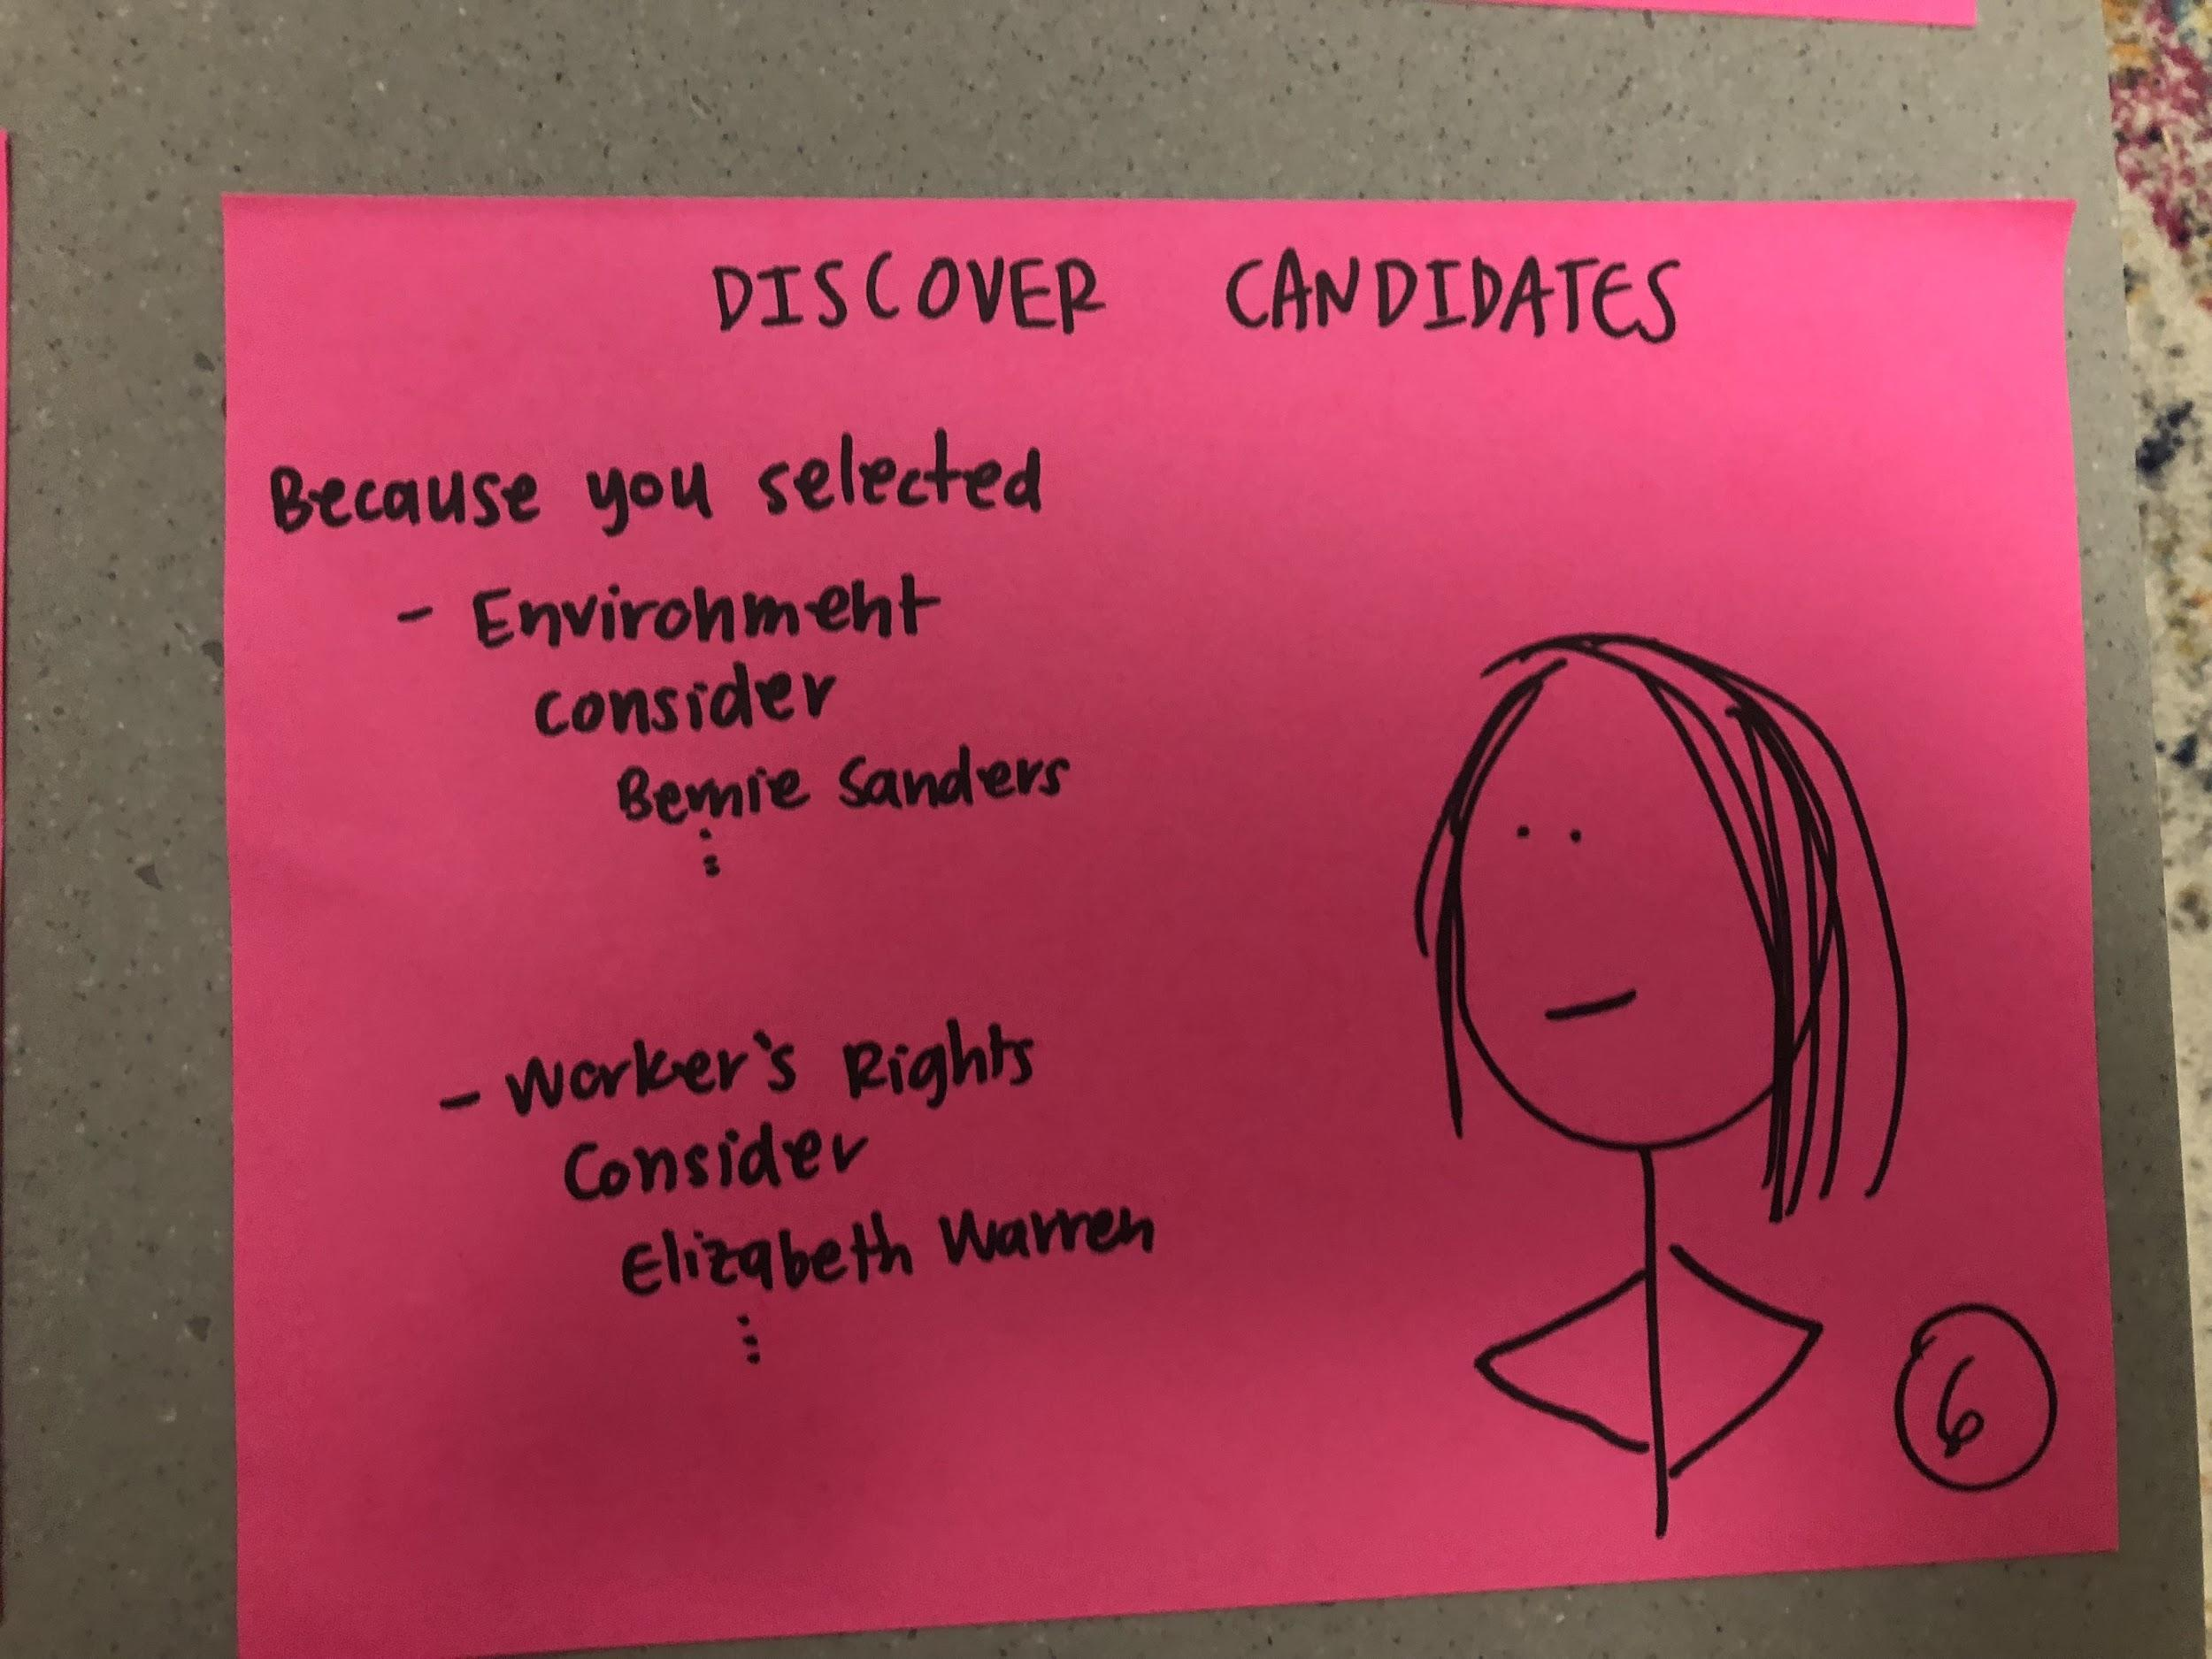 DISCOVER CANDIDATES
Because you selected
- Environment
consider
Bernie Sanders
⋮
- Worker's Rights
Consider
Elizabeth Warren
⋮
6